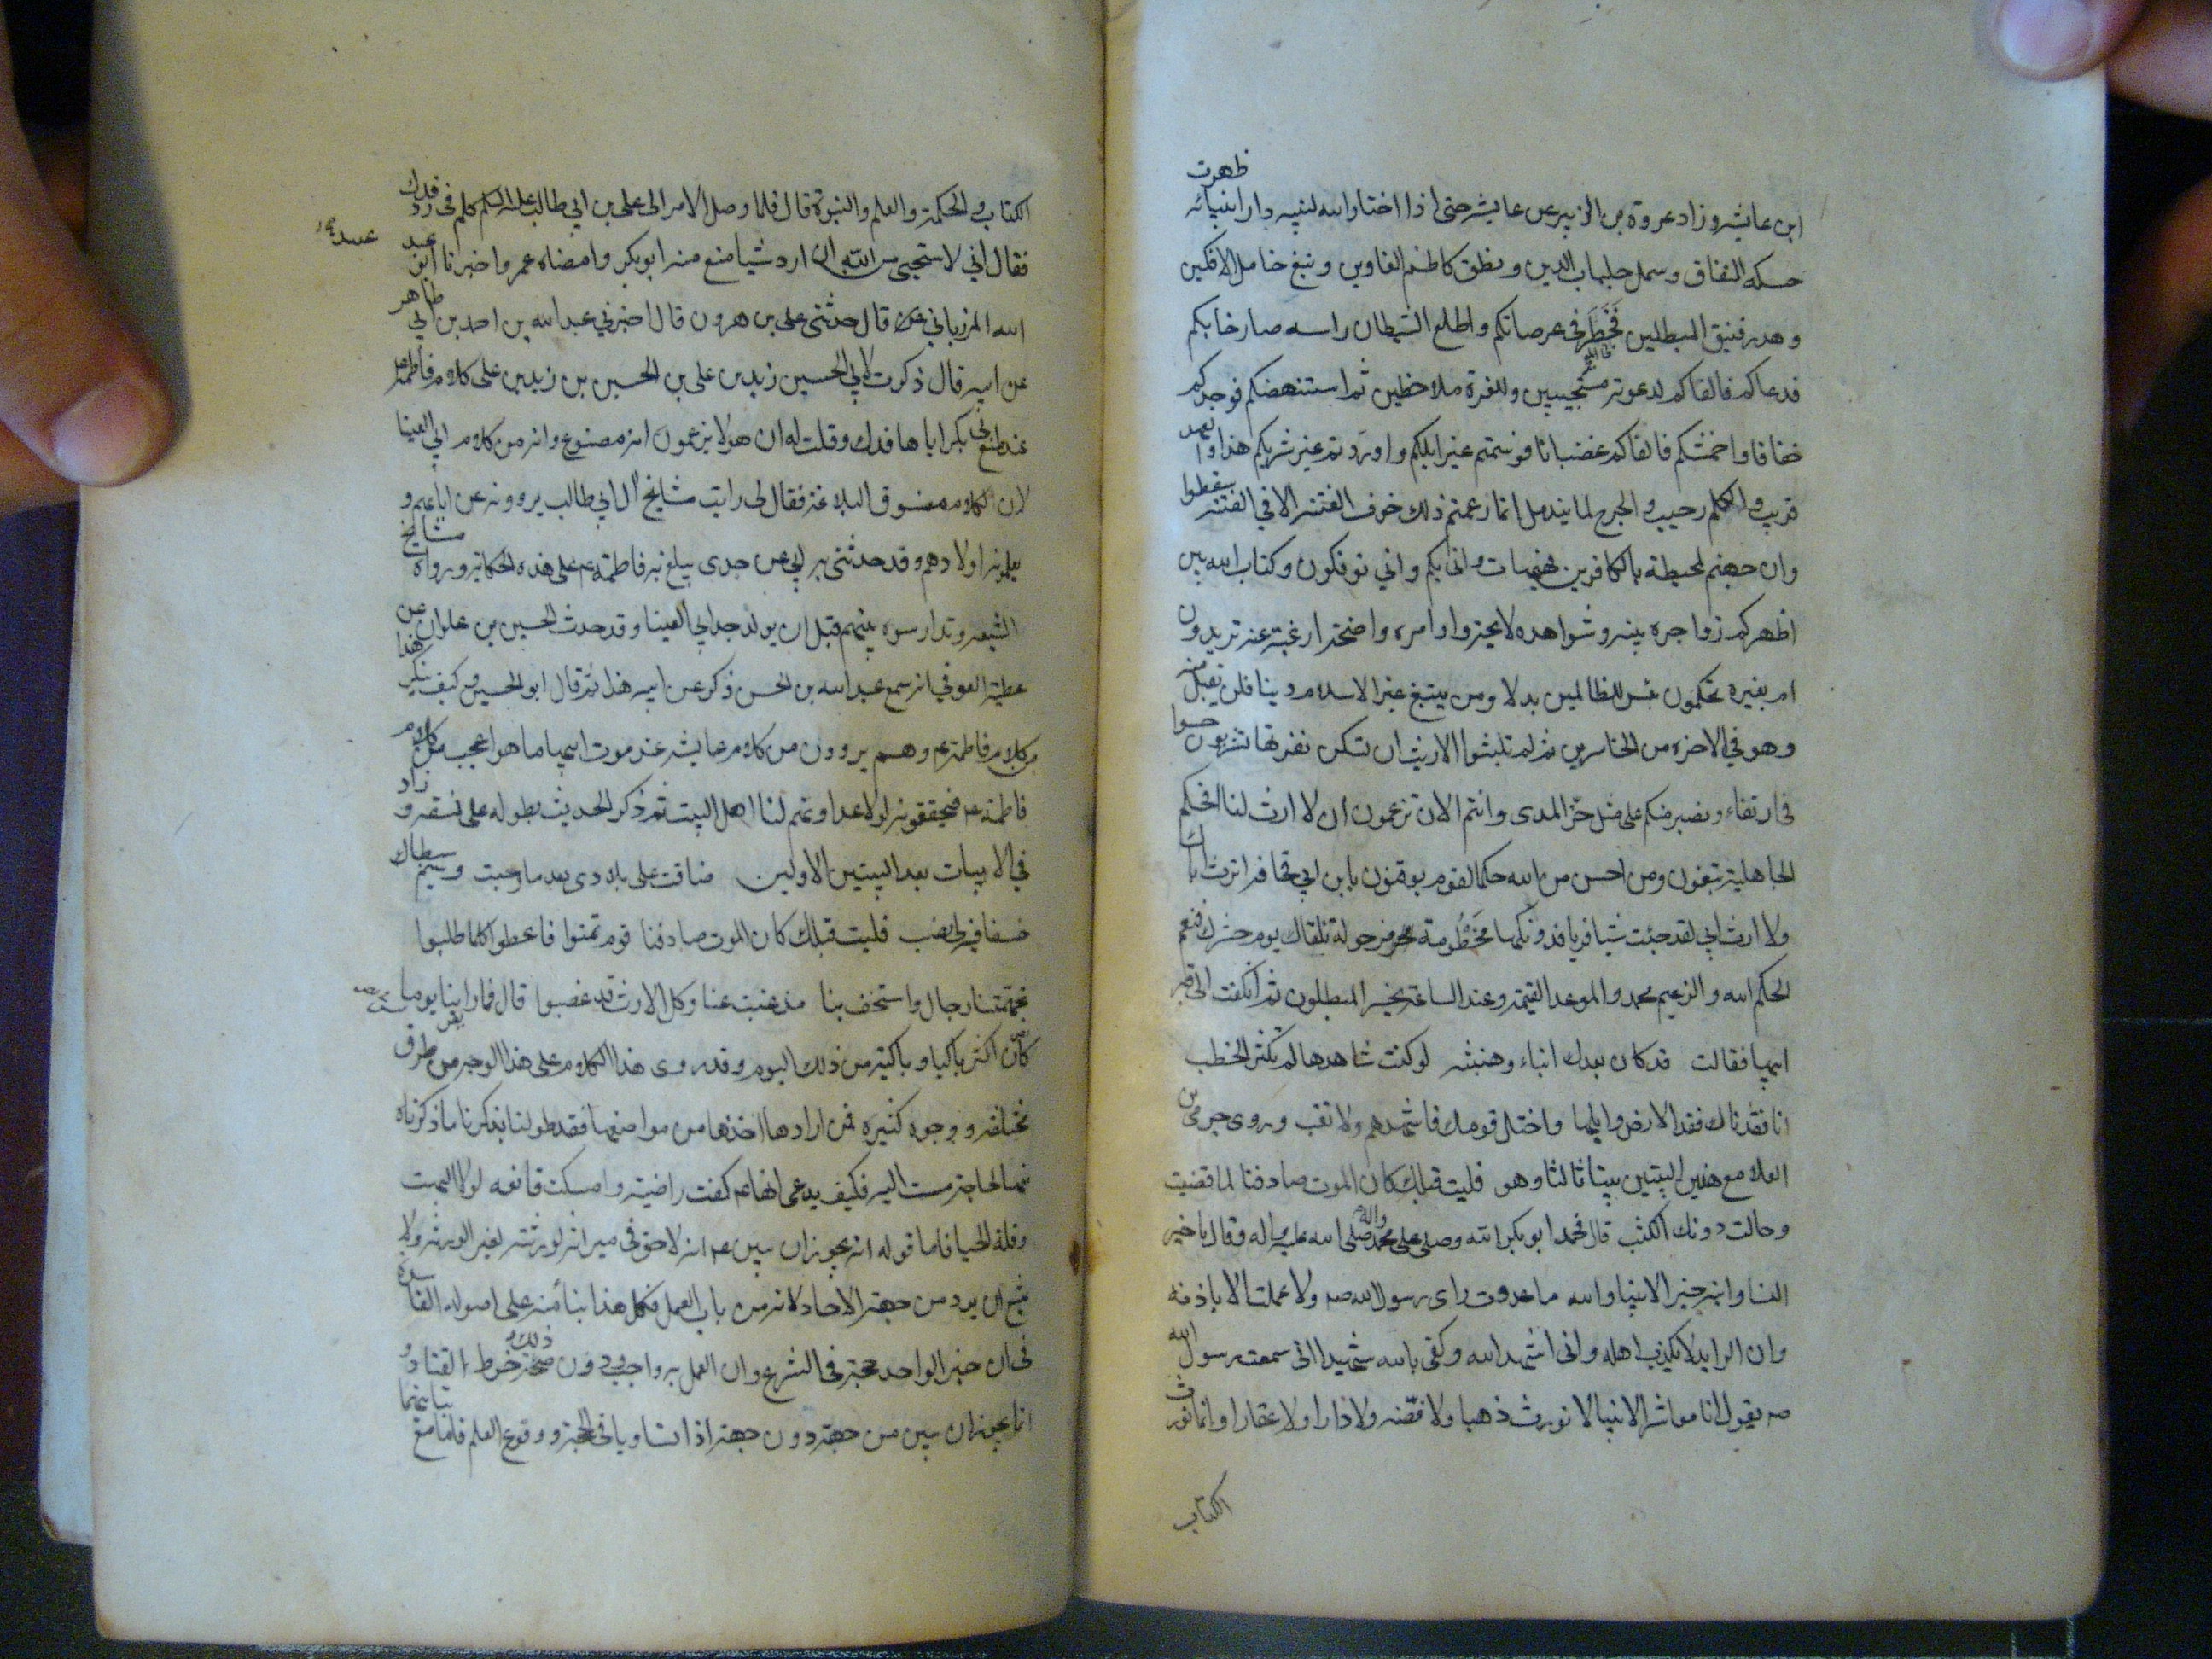 ابن عايشه وزاد عروة بن الزبير عن عايشه حتى اذا اختار الله لنبيه دار انبيائه ظهرت
حسكه النفاق وسمل جلباب الدين ونطق كاظم الغاوين ونبغ خامل الافكين
وهدر فنيق المبطلين فَخَطَرَ في عرصاتكم واطلع الشيطان راسه صارخا بكم
فدعاكم فالفاكم لدعوته مستجيبين وللغرة ملاحظين ثم استنهضكم فوجدكم
خفافا واحمشكم فالفاكم غضبانا فوسمتم غير ابلكم واوردتم غير شربكم هذا والعهد
قريب والكلم رحيب والجرح لما يندمل انما زعمتم ذلك خوف الفتنه الا في الفتنه سقطوا
وان جهنم لمحيطة بالكافرين فهيهات وانى بكم واني توفكون وكتاب الله بين
اظهركم زواجره بينه وشواهده لايحه واوامره واضحة ارغبة عنه تريدون
ام بغيره تحكمون بئس للظالمين بدلا ومن يبتغ غير الاسلام دينا فلن يقبل منه
وهو في الاخره من الخاسرين ثم لم تلبثوا الا ريث ان تسكن نفرتها تشربون حسوا
في ارتغاء ونصبر منكم على مثل حزّ المدى وانتم الان تزعمون ان لا ارث لنا افحكم
الجاهلية تبغون ومن احسن من الله حكما لقوم يوقنون يا ابن ابي قحافه اترث اباك
ولا ارث ابي لقد جئت شيا فريا فدونكها مَخطُومة مرحولة تلقاك يوم حشرك فنعم
الحكم الله والزعيم محمد والموعد القيمة وعند الساعة يخسر المبطلون ثم انكفت الى قبر
ابيها فقالت قد كان بعدك انباء وهنبثه لو كنت شاهدها لم تكثر الخطب
انا فقدناك فقد الارض وابلها واختل قومك فاشهدهم ولا تغب وروى حرمي بن
العلا مع هذين البيتين بيتا ثالثا وهو فليت قبلك كان الموت صادفنا لما قضيت
وحالت دونك الكثب قال فحمد ابو بكر الله وصلى على محمد واله صلى الله عليه واله وقال يا خير
النسا وابنة خير الانبيا والله ما عدوت راى رسول الله صه ولا عملت الا باذنه
وان الرايد لا يكذب اهله واني اشهد الله وكفى بالله شهيدا اني سمعت رسول الله
صه يقول انا معاشر الانبيا لا نورث ذهبا ولا فضّه ولا دارا ولا عقارا وانما نورث
الكتاب
الكتاب والحكمة والعلم والنبوة قال فلما وصل الامر الى علي بن ابي طالب عليه السلم كلم في رد فدك
فقال اني لاستحيى من الله ان ارد شيا منع منه ابو بكر وامضاه عمر واخبرنا ابو عبد
الله المرزباني قال حدثني علي بن هرون قال اخبرني عبد الله بن احمد بن ابي طاهر
عن ابيه قال ذكرت لابي الحسين زيد بن علي بن الحسين بن زيد بن علي كلام فاطمة
عند منع ابي بكر اياها فدك وقلت له ان هولا يزعمون انه مصنوع وانه من كلام ابي العينا
لان الكلام منسوق البلاغة فقال لي رايت مشايخ ال ابي طالب يروونه عن ابائهم و
يعلمونه اولادهم وقد حدثني به ابي عن جدى يبلغ به فاطمة ع على هذه الحكاية ورواه مشايخ
الشيعه وتدارسوه بينهم قبل ان يولد جد ابي العينا وقد حدث الحسين بن علوان عن
عطية العوفي انه سمع عبد الله بن الحسن ذكر عن ابيه هذا ثم قال ابو الحسين وكيف ينكر هذا
من كلام فاطمة ع وهم يروون من كلام عايشه عند موت ابيها ما هو اعجب من كلام
فاطمة ع فيحققونه لولا عداوتهم لنا اهل البيت ثم ذكر الحديث بطوله على نسقه وزاد
في الابيات بعد البيتين الاولين ضاقت علي بلادى بعد ما رحبت وسيم سبطاك
خسفا فيه لي نصب فليت قبلك كان الموت صادفنا قوم تمنوا فاعطوا كلما طلبوا
تجهمتنا رجال واستخف بنا مذ غبت عنا وكل الارث قد غصبوا قال فما راينا يوما
كان اكثر باكيا وباكية من ذلك اليوم وقد روى هذا الكلام على هذا الوجه من طرق
مختلفه ووجوه كثيره فمن ارادها اخذها من مواضعها فقد طولنا بذكرنا ما ذكرناه
منها لحاجة مست اليه فكيف يدعى انها ع كفت راضية وامسكت قانعه لولا البهت
وقلة الحيا فاما قوله انه يجوز ان يبين ع انه لا حق في ميراثه لورثته لغير الورثه ولا
يمتنع ان يرد من جهة الاحاد لانه من باب العمل فكل هذا بناء منه على اصوله الفاسدة
في ان خبر الواحد حجة في الشرع وان العمل به واجب ودون صحة ذلك خرط القتاد و
انما يجوز ان يبين من جهة دون جهة اذا تساويا في الحجة ووقوع العلم فاما مع تباينهما